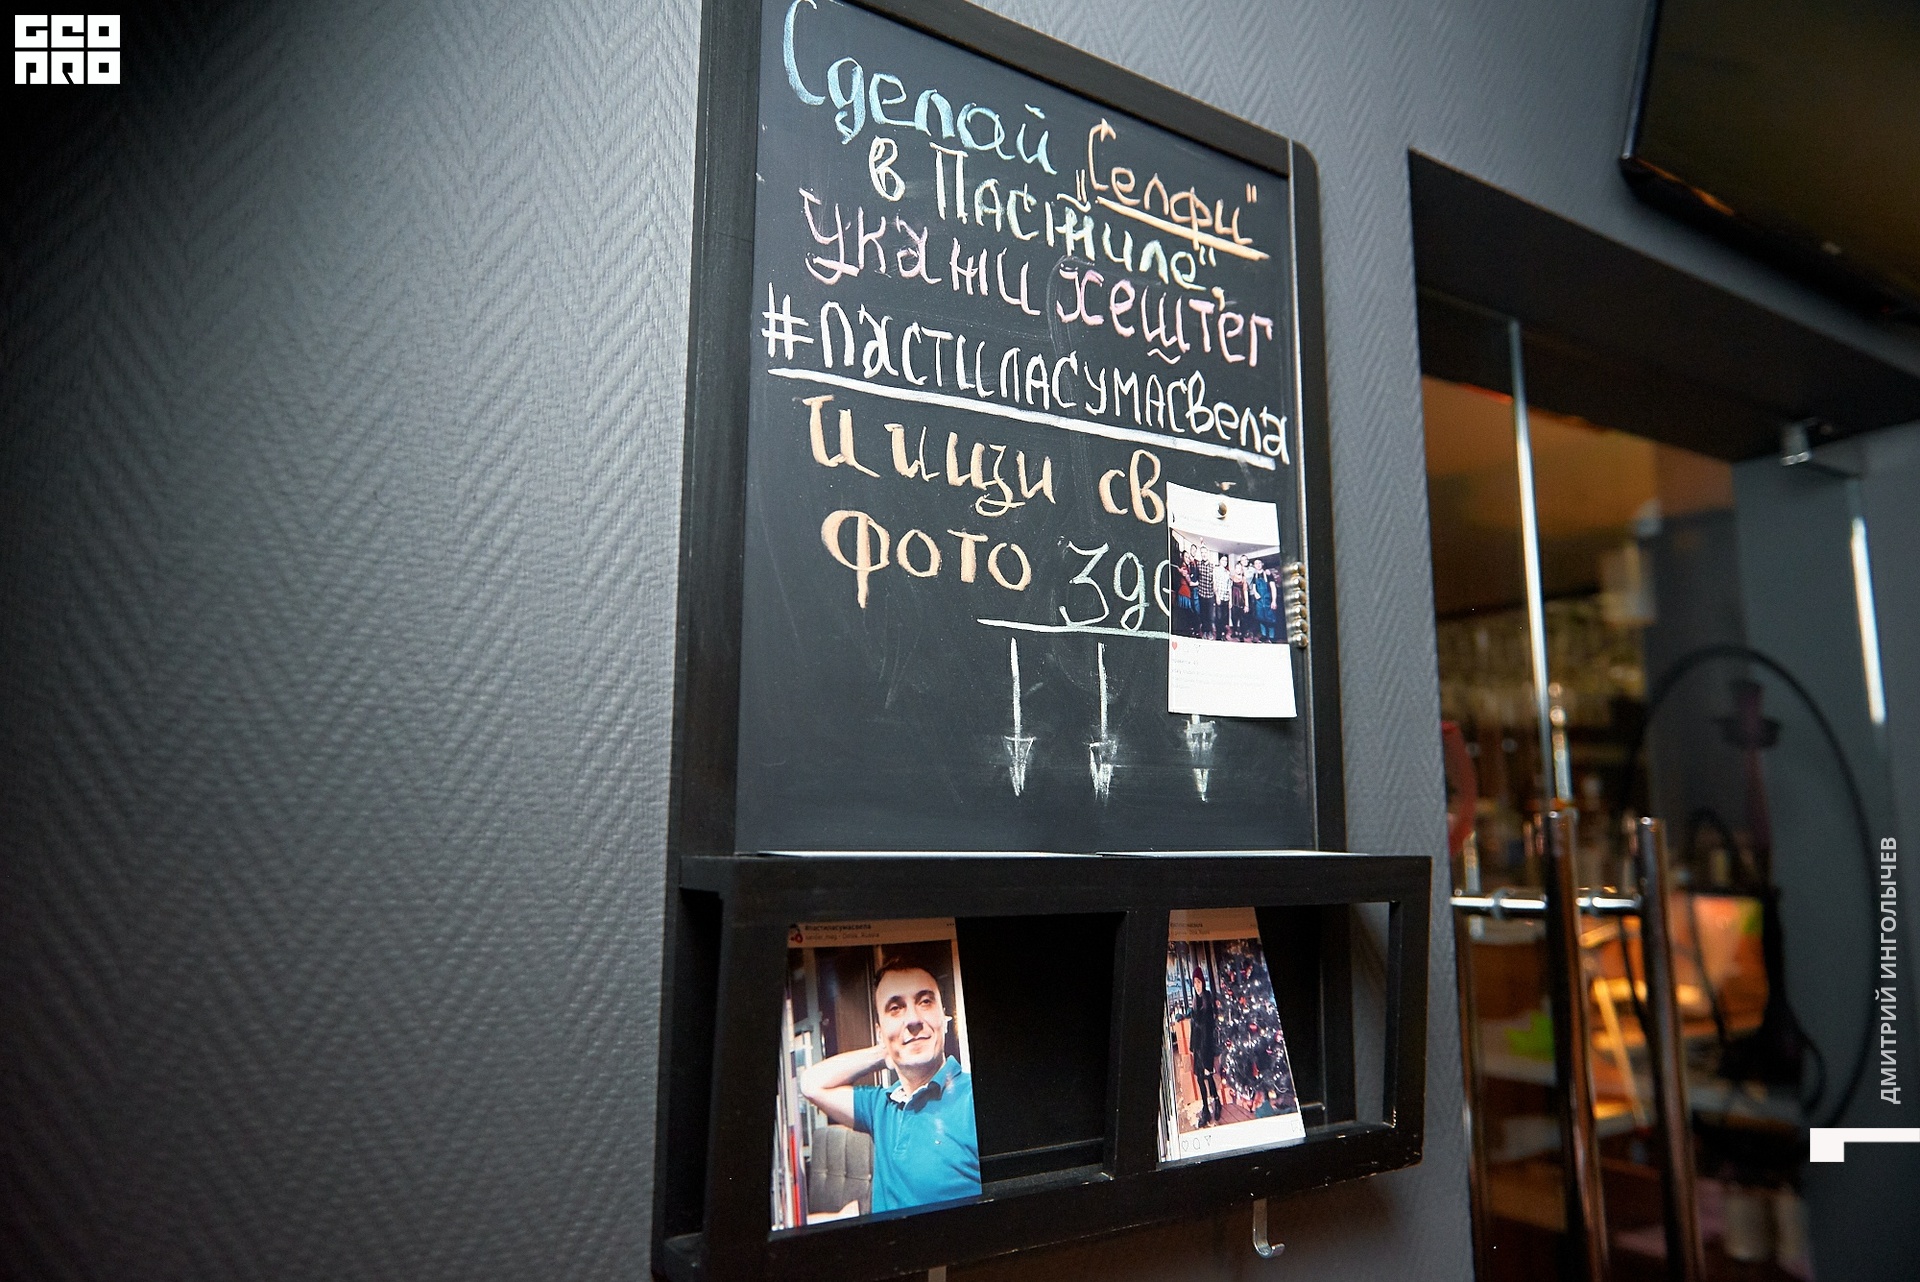 GEO
PRO
Сделай „Селфи"
в „Пастиле",
укажи хештег
#пастиласумасвела
И ищи св
фото зде
#пастиласумасвела
ДМИТРИЙ ИНГОЛЫЧЕВ